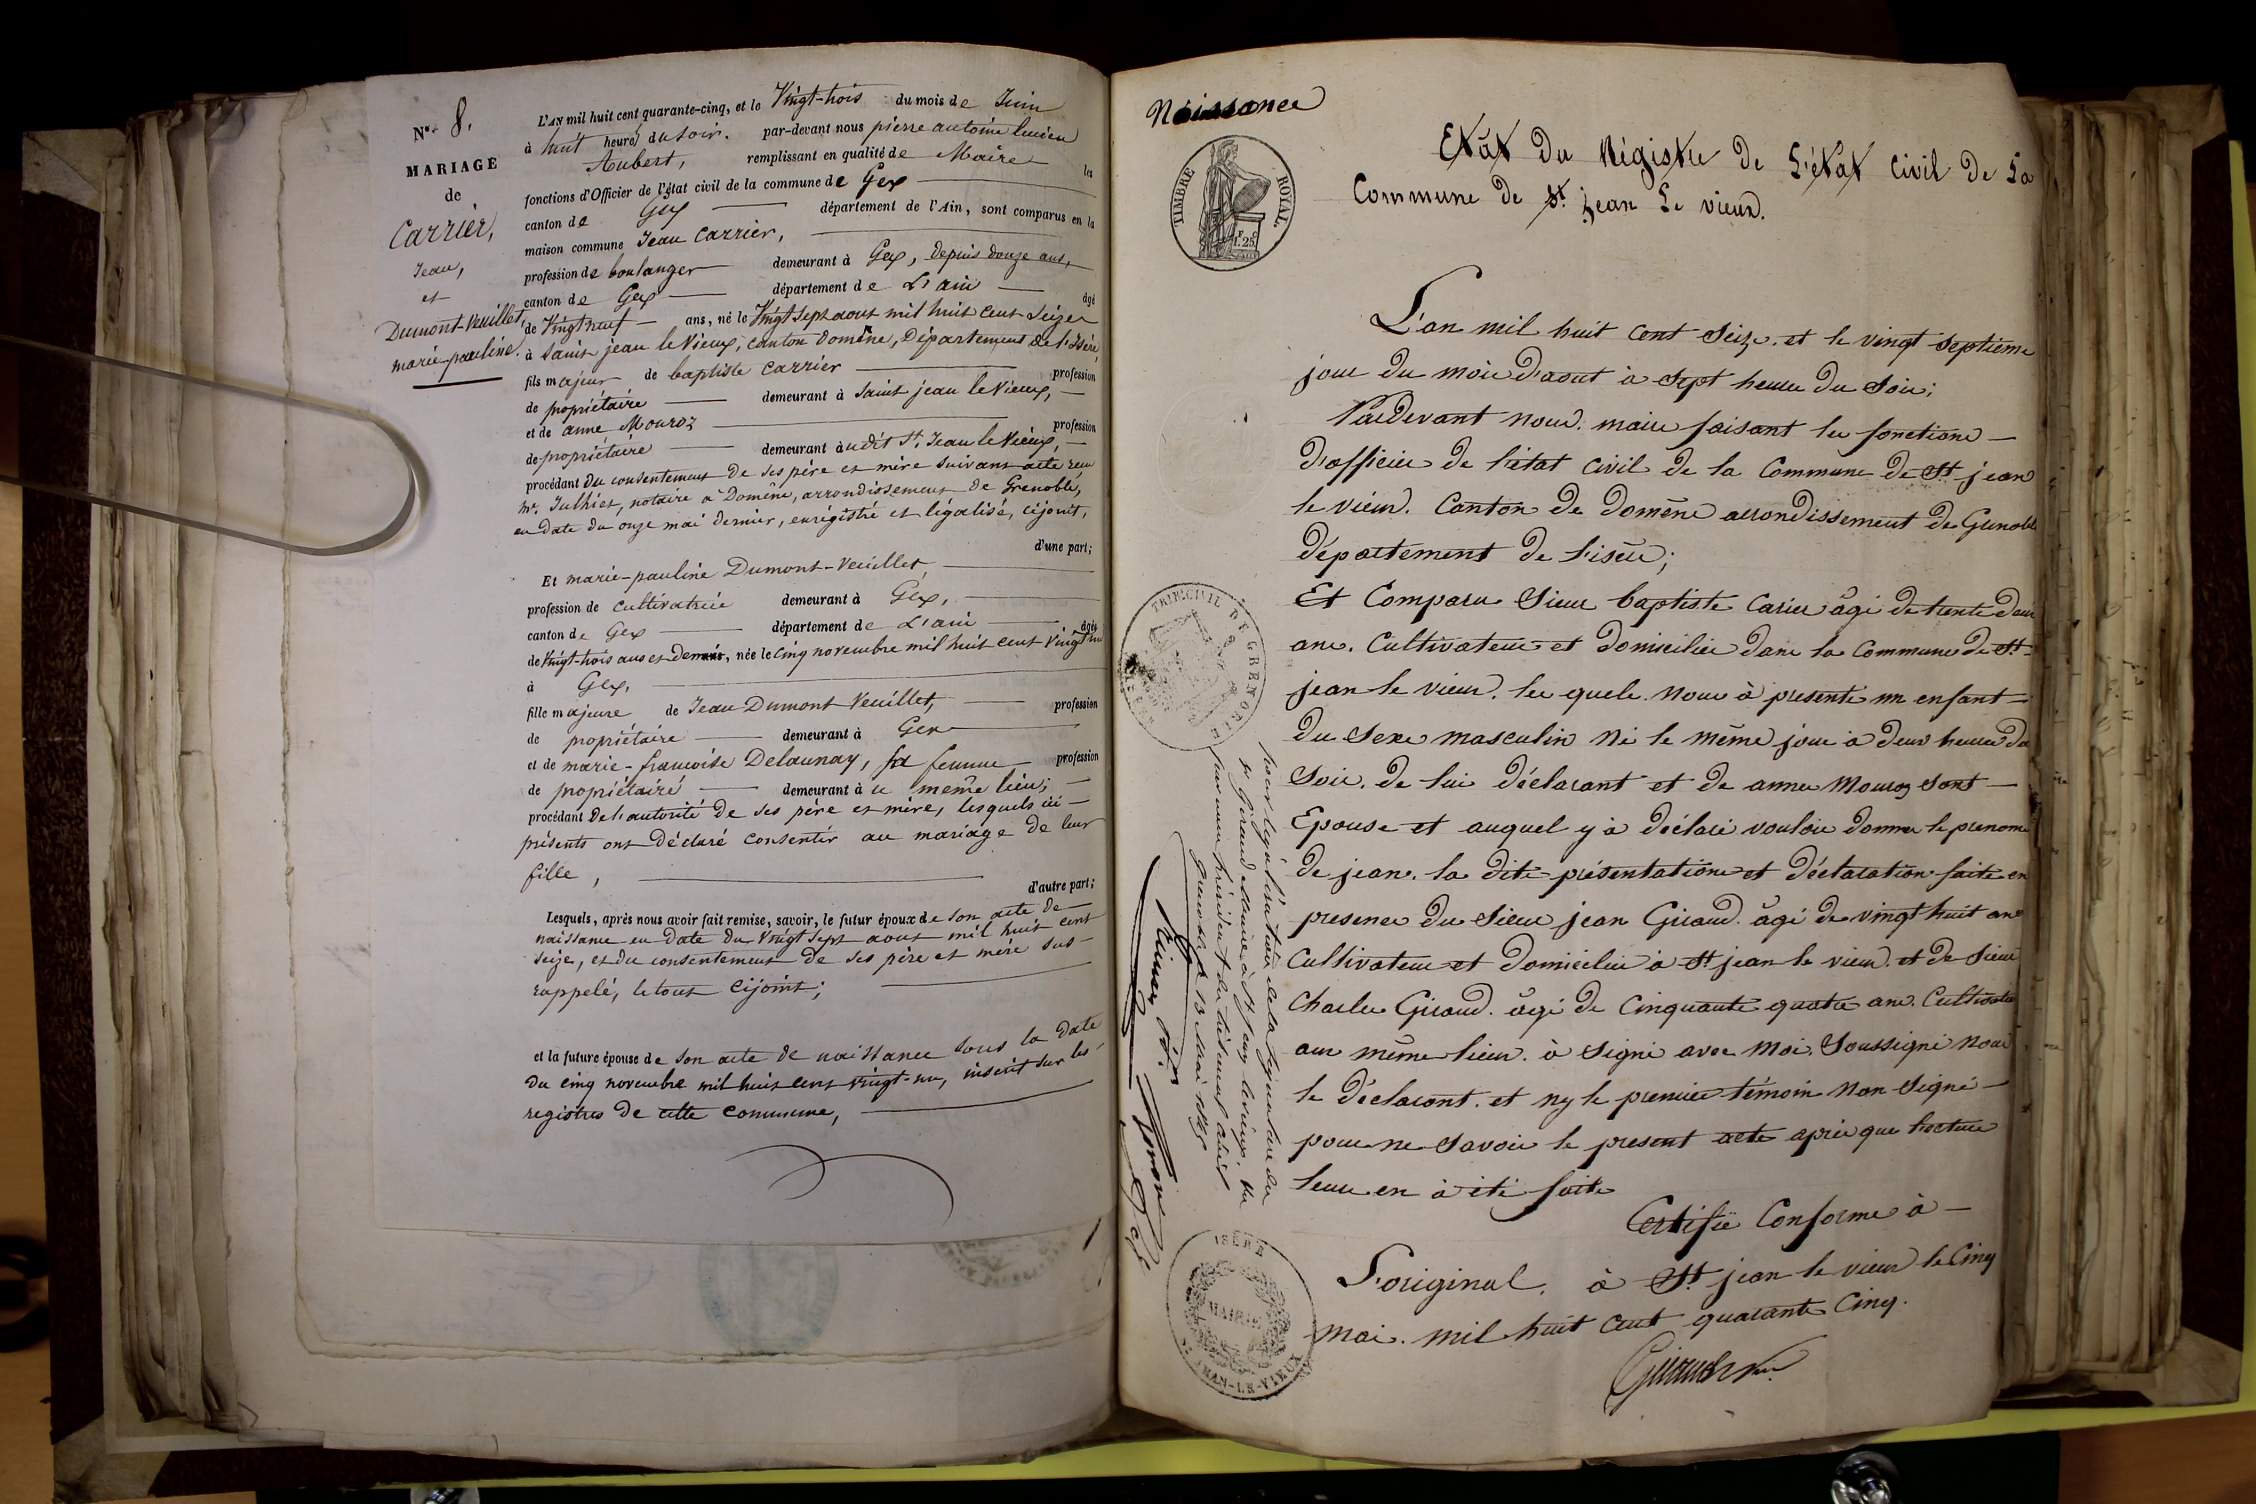 N° 8.
MARIAGE
de
Carrier,
Jean,
et
Dumont-Veuillet,
marie-pauline.
L'AN mil huit cent quarante-cinq, et le Vingt-trois du mois de Juin
à huit heures du soir. par-devant nous pierre antoine lucien
Aubert, remplissant en qualité de Maire les
fonctions d'Officier de l'état civil de la commune de Gex
canton de Gex département de l'Ain, sont comparus en la
maison commune Jean Carrier,
profession de boulanger demeurant à Gex, depuis douze ans,
canton de Gex département de L'ain âgé
de Vingt neuf ans, né le Vingt sept aout mil huit cent Seize
à Saint jean le Vieux, canton Domène, Département de l'Isère,
fils majeur de baptiste Carrier profession
de propriétaire demeurant à Saint jean le Vieux,
et de anne Mouroz profession
de propriétaire demeurant àudit St. Jean le Vieux,
procédant du consentement de ses père et mère suivant acte reçu
Mr. Julhiet, notaire à Domène, arrondissement de Grenoble,
en date du onze mai dernier, enrégistré et légalisé, cijoint,
d'une part;
Et marie-pauline Dumont-Veuillet,
profession de cultivatrice demeurant à Gex,
canton de Gex département de L'ain âgée
de Vingt-trois ans et demi, née le Cinq novembre mil huit cent Vingt un
à Gex,
fille majeure de Jean Dumont Veuillet, profession
de propriétaire demeurant à Gex
et de marie-francoise Delaunay, sa femme profession
de propriétaire demeurant à u même lieu,
procédant De l'autorité de ses père et mère, lesquels ici
présents ont Déclaré consentir au mariage de leur
fille,
d'autre part;
Lesquels, après nous avoir fait remise, savoir, le futur époux de son acte de
naissance en date du Vingt sept aout mil huit cent
Seize, et du consentement de ses père et mère sus-
rappelé, le tout cijoint;
et la future épouse de son acte de naissance sous la date
du cinq novembre mil huit cent vingt-un, inscrit sur les
registres de cette commune,
Naissance
TIMBRE ROYAL.
1F. 25C
Etat du Régistre de L'état Civil de La
Commune de St. jean Le vieux.
L'an mil huit cent Seize. et le vingt septieme
jour du mois d'aout à sept heures du Soir;
Pardevant nous. maire faisant les fonctions
d'officier de l'état civil de la Commune de St. jean
le vieux. Canton de domène arrondissement de Grenoble
département de l'isère;
Et Comparu Sieur baptiste Carier âgé de trente deux
ans. Cultivateur et domicilié dans la Commune de St.
jean le vieux. les quels. nous à presenté un enfant
du Sexe masculin né le même jour à deux heures du
Soir. de lui déclarant et de anne Mouroz sont
Epouse et auquel y à déclaré vouloir donner le prenoms
de jean. la dite présentation et déclaration faite en
presence du Sieur jean Giraud. âgé de vingt huit ans
Cultivateur et domicilié à St. jean le vieux. et de Sieur
Charles Giraud. âgé de cinquante quatre ans. Cultivateur
aux même lieux. à Signé avec moi. Soussigné nous
le déclarant. et ny le premier témoin non signé
pour ne Savoir le present acte après que lecture
leur en à été faite
Certifié Conforme à
L'original. à St. jean le vieux le Cinq
mai. mil huit cent quarante Cinq.
Giraud
TRIB. CIVIL DE GRENOBLE
pour légalisation de la signature du
Sr. Giraud Maire à St. Jean le vieux. Vu
par nous président du tribunal civil
Grenoble le 13 mai 1845
ISÈRE
MAIRIE
ST. JEAN-LE-VIEUX